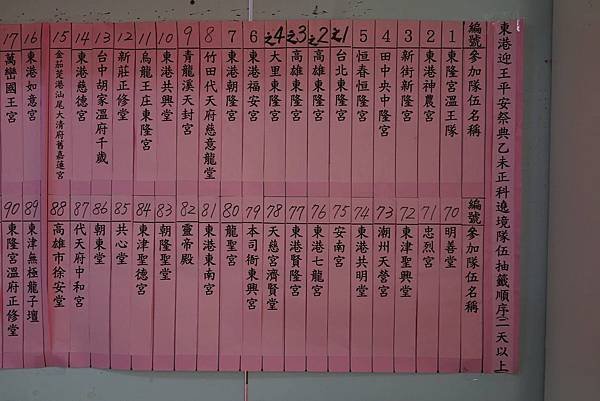 東港迎王平安祭典乙未正科遶境隊伍抽籤順序二天以上
編號 參加隊伍名稱
1 東隆宮溫王隊
2 東港神農宮
3 新街新隆宮
4 田中央中隆宮
5 恒春恒隆宮
之1 台北東隆宮
之2 高雄東隆宮
之3 高雄東隆宮
之4 大里東隆宮
6 東港福安宮
7 東港朝隆宮
8 竹田代天府慈意龍堂
9 青龍溪天封宮
10 東港共興堂
11 烏龍王庄東隆宮
12 新莊正修堂
13 台中胡家溫府千歲
14 東港慈德宮
15 金茄萣港汕尾大清府舊嘉蓮宮
16 東港如意宮
17 萬巒國王宮
編號 參加隊伍名稱
70 明善堂
71 忠烈宮
72 東津聖興堂
73 潮州天營宮
74 東港共明堂
75 安南宮
76 東港七龍宮
77 東港賢隆宮
78 天慈宮濟賢堂
79 本司衙東興宮
80 龍聖宮
81 東港東南宮
82 靈帝殿
83 朝隆聖堂
84 東津聖德宮
85 共心堂
86 朝東堂
87 代天府中和宮
88 高雄市徐安堂
89 東津無極龍子壇
90 東隆宮溫府正修堂